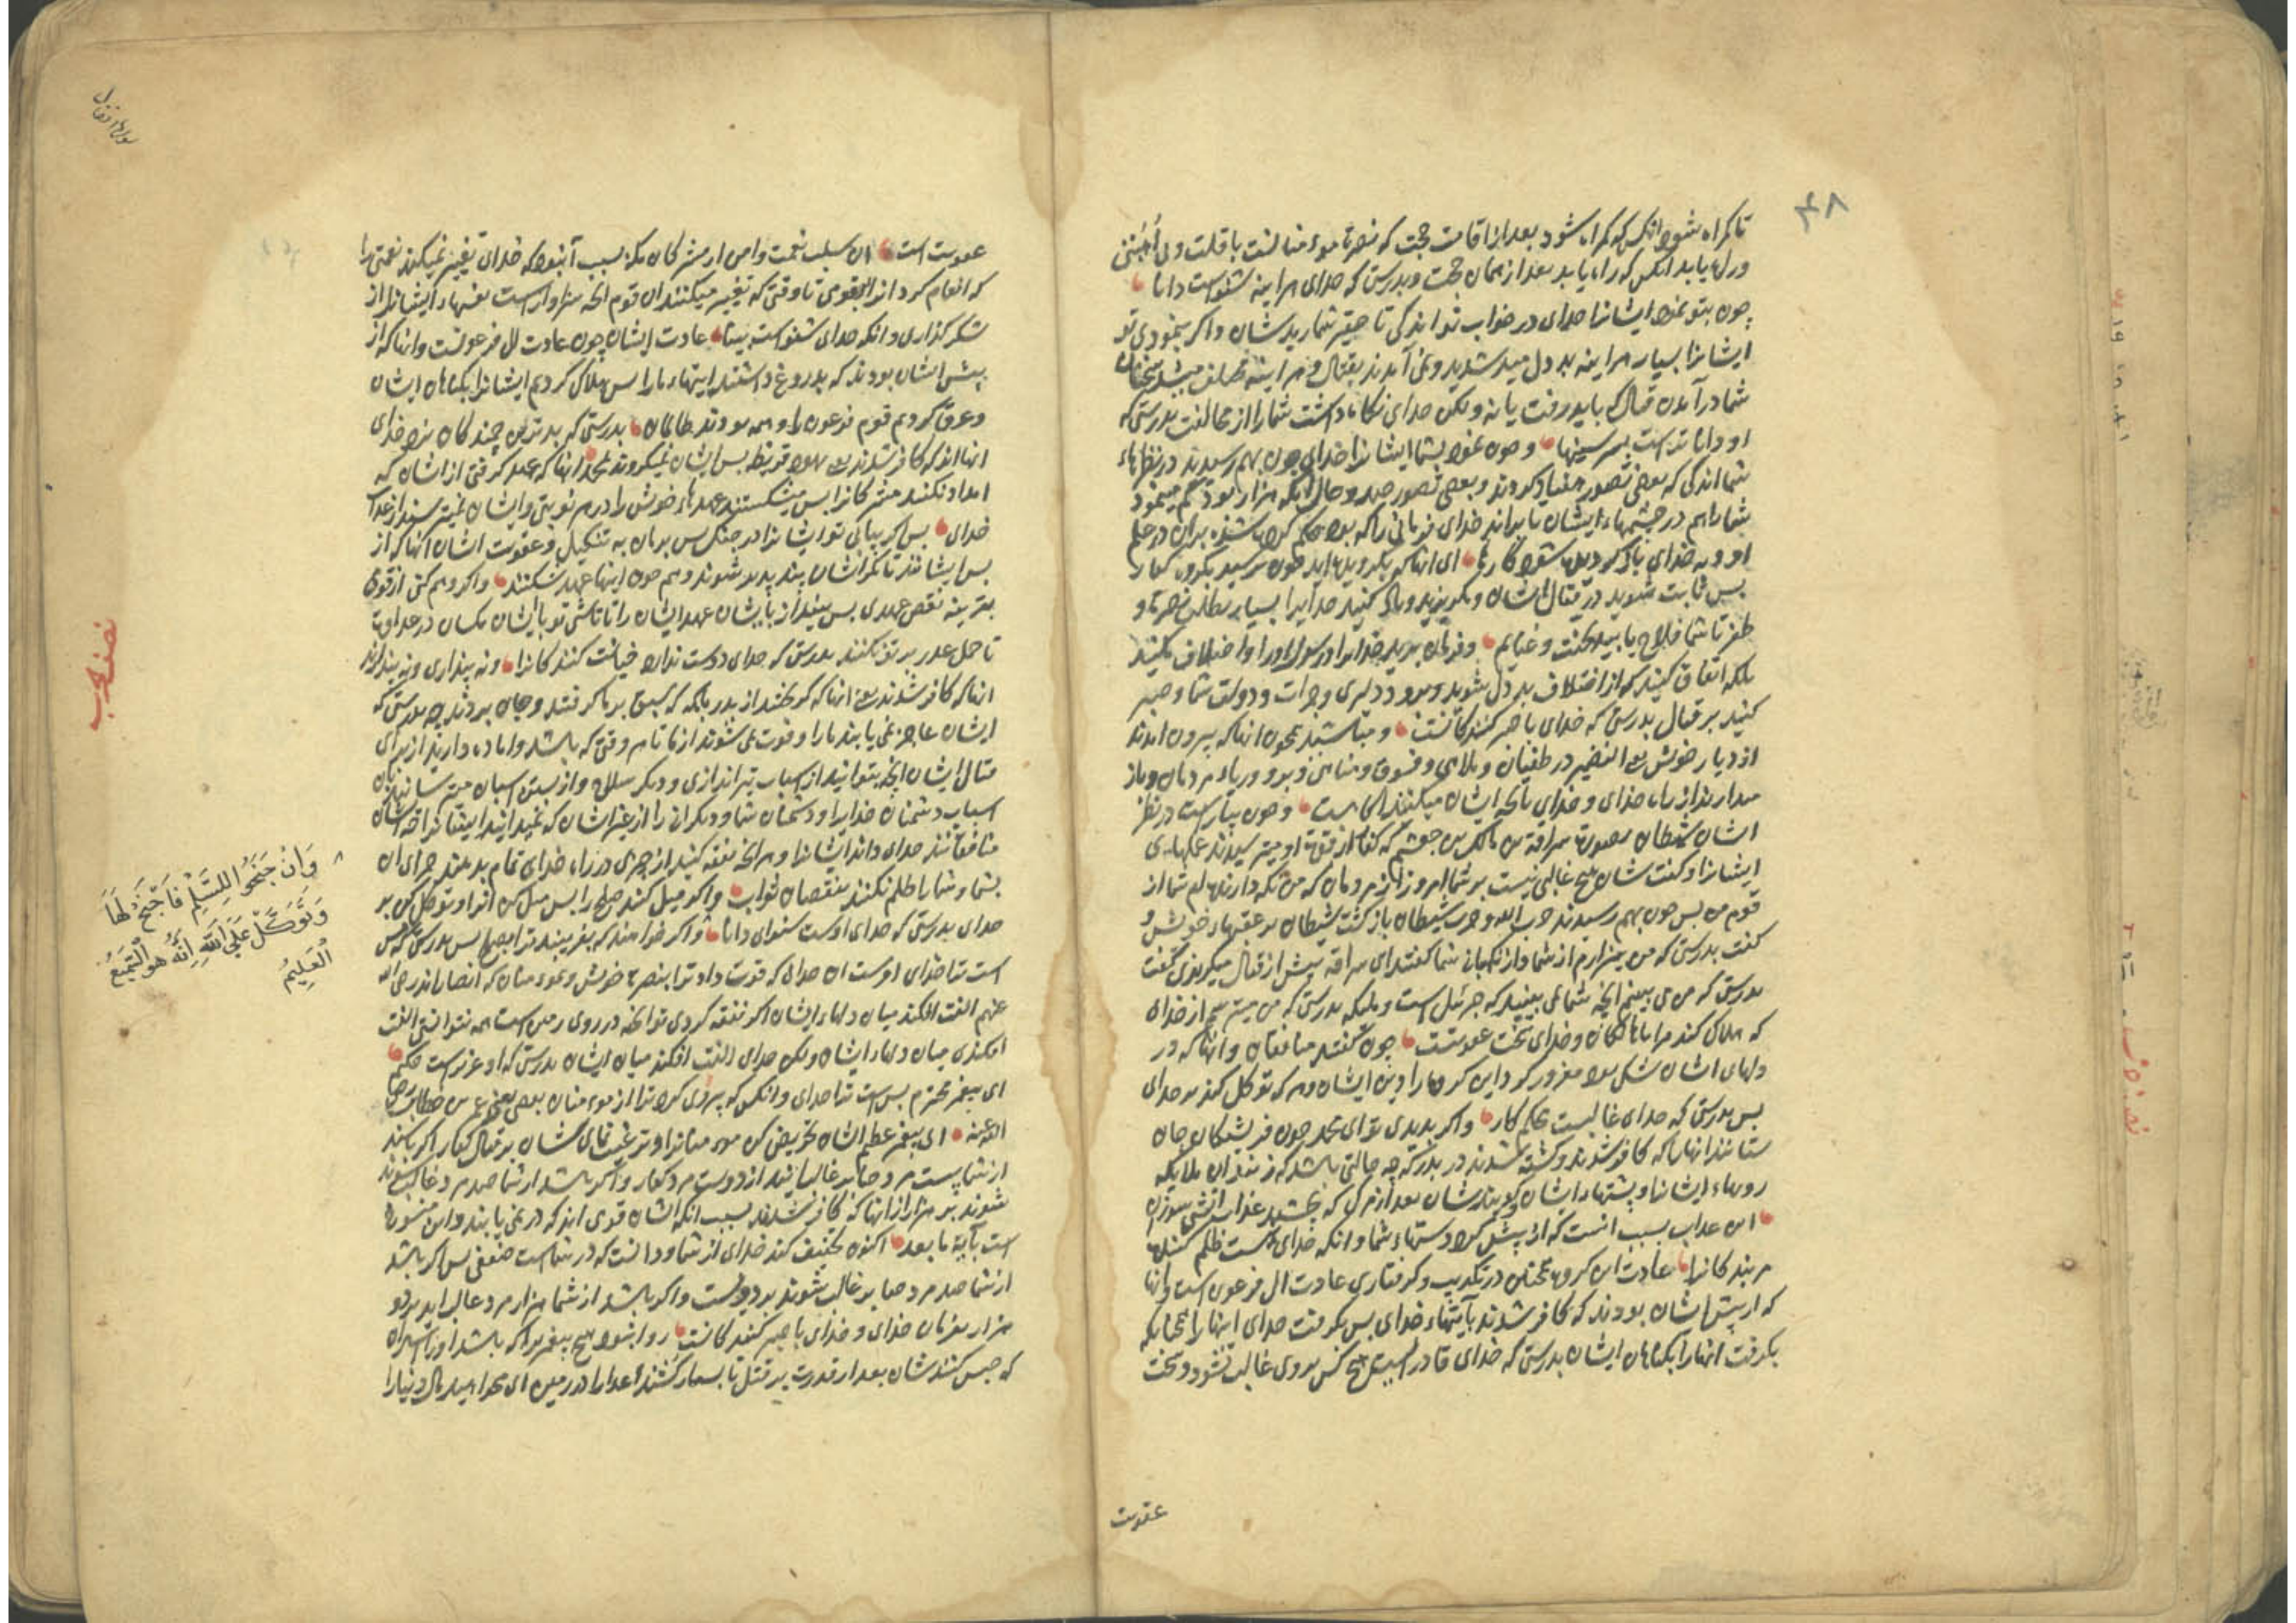 ۴۸
تا کمراه شود انکس که کمراه شود بعد از اقامت حجت که نصرة موءمنانست با قلت
و راه یابد انکس که راه یابد بعد از همان حجت و بدرستی که خدای هراینه شنواست دانا
چون بتو نمود ایشانرا خدای در خواب تو اندکی تا حقیر شمارید شان و اکر بنمودی تو
ایشانرا بسیار هراینه بد دل میشدید و نمی آمدند بقتال و هراینه مختلف میشد سخنتان
شما در آمدن قتال که باید رفت یا نه ولکن خدای نکاه داشت شما را از مخالفت بدرستی که
او داناتر است بسر سینها و چون نمود بشما ایشانرا خدای چون بهم رسیدند در نظرهاء
شما اندکی که بعضی تصور هفتاد کردند و بعضی تصور صد و حال آنکه هزار بود و کم مینمود
شما را هم در چشمهاء ایشان تا براند خدای فرمانی را که بود حکم کرده شده بران در علم
او و به خدای باز کردیده شود کارها ای انها که بکرویده اید چون برسید بکروه کفار
بس ثابت شوید در قتال ایشان و مکریزید و یاد کنید خدایرا بسیار بطلب نصرة و
ظفر تا شما فلاح یابید بجنت و غنایم و فرمان برید خدایرا و رسول او را و اختلاف مکنید
بلکه اتفاق کنید که از اختلاف بد دل شوید و برود دلیری و جرات و دولت شما و صبر
کنید بر قتال بدرستی که خدای با صبر کنندکانست و مباشید همچون انها که بیرون امدند
از دیار خویش در طغیان و ملاهی و فسوق و مناهی و بر و ریاء مردمان و باز
میدارند از راه خدای و خدای بانچه ایشان میکنند اکاهست و چون بیاراست در نظر
ایشان شیطان بصورت سراقه بن مالک بن جعشم که کفار از قوم او میترسیدند عملهای
ایشانرا و کفت شان هیچ غالبی نیست بر شما امروز از مردمان که من نکه دارنده ام شما از
قوم من بس چون بهم رسیدند حزب الله و حزب شیطان باز کشت شیطان بر عقبهاء خویش و
کفت بدرستی که من بیزارم از شما و از نکهبانی شما کفتند ای سراقه پیش از قتال میکریزی کفت
بدرستی که من می بینم انچه شما نمی بینید که جبرئیل است و ملیکه بدرستی که من میترسم از خدای
که هلاک کند مرا ناکاهان و خدای سخت عقوبتست چون کفتند منافقان و انها که در
دلهای ایشان شکی بود مغرور کرد این کروه را دین ایشان و هر که توکل کند بر خدای
بس بدرستی که خدای غالبیست محکم کار و اکر بدیدی تو ای محمد چون فریشتکان جان
ستانند انها را که کافر شدند و کشته شدند در بدر که چه حالتی باشد که زنند ان ملایکه
رویهاء ایشانرا و پشتهاء ایشان و کویند شان بعد از مرک که بچشید عذاب اتش سوزان
این عذاب بسبب انست که از پیش کرد دستهاء شما و انکه خدای نیست ظلم کننده
مر بندکانرا عادت این کروه همچنان در تکذیب و کرفتاری عادت ال فرعون است و انها
که از پیش ایشان بودند که کافر شدند بآیتهاء خدای بس بکرفت خدای اینها را همچنانکه
بکرفت انها را بکناهان ایشان بدرستی که خدای قادر است هیچ کس بروی غالب نشود و سخت
عقوبت
سوره انفال
عقوبت است این سلب نعمت و امن از مشرکان مکه بسبب آنبود که خدای تغییر نمیکند نعمتی را
که انعام کرد انرا بقومی تا وقتی که تغییر میکنند ان قوم انچه سزاوار است بنفسهاء ایشانرا از
شکر کذاری و انکه خدای شنواست بینا عادت ایشان چون عادت ال فرعونست و انها که از
پیش ایشان بودند که بدروغ داشتند ایتهاء ما را بس هلاک کردیم ایشانرا بکناهان ایشان
و غرق کردیم قوم فرعون را و همه بودند ظالمان بدرستی که بدترین جنبندکان نزد خدای
انها اند که کافر شدند یعنی یهود قریظه بس ایشان نمیکروند بمحمد انها که عهد کرفتی از ایشان که
امداد نکنند مشرکانرا بس میشکستند عهدهاء خویش را در هر نوبتی و ایشان نمیترسند از عذاب
خدای بس اکر بیابی تو ایشانرا در جنک بس برمان به تنکیل و عقوبت ایشان انها که از
بس ایشانند تا مکر ایشان پند پذیر شوند و هم چون اینها عهد نشکنند و اکر وهم کنی از قومی
بقرینه نقض عهدی بس بینداز بایشان عهد ایشان را تا باشی تو با ایشان یکسان در عداوت
تا حمل غدر بر تو نکنند بدرستی که خدای دوست ندارد خیانت کنندکانرا و نه پنداری و نه پندارند
انها که کافر شدند یعنی انها که کریختند از بدر بانکه که سبق بر ما کرفتند و جان بردند چه بدرستی که
ایشان عاجز نمی یابند ما را و فوت نمی شوند از ما تا هر وقتی که باشد و اماده دارید از برای
قتال ایشان انچه بتوانید از اسباب تیراندازی و دیکر سلاح و از بستن اسبان می ترسانید بان
اسباب دشمنان خدایرا و دشمنان شما و دیکرانی را از غیر ایشان که نمیدانید ایشانرا که ایشان
منافقانند خدای داند ایشانرا و هر انچه نفقه کنید از چیزی در راه خدای تمام بدهند جزای ان
بشما و شما را ظلم نکنند بنقصان ثواب و اکر میل کنند صلح را بس میل کن انرا و توکل کن بر
خدای بدرستی که خدای اوست شنوای دانا و اکر خواهند که بفریبند ترا بصلح بس بدرستی که بس
است ترا خدای اوست ان خدای که قوت داد ترا بنصرة خویش و بموءمنان که انصارند رضی الله
عنهم الفت افکند میان دلهاء ایشان اکر نفقه کردی تو انچه در روی زمین است همه نتوانستی الفت
افکندی میان دلهاء ایشان ولکن خدای الفت افکند میان ایشان بدرستی که او عزیز است حکیم
ای پیغمبر محترم بس است ترا خدای و انکس که پیروی کرد ترا از موءمنان یعنی عمر بن خطاب رضی
الله عنه ای پیغمبر عظیم الشان تحریض کن موءمنانرا و ترغیب نمای شان بر قتال کفار اکر باشند
از شما بیست مرد صابر غالب آیند از دویست مرد کفار و اکر باشد از شما صد مرد غالب شوند
شوند بر هزار از انها که کافر شدند بسبب انکه ایشان قومی اند که در نمی یابند و این منسوخ
است بآیة ما بعد اکنون تخفیف کند خدای از شما و دانست که در شماست ضعفی بس اکر باشد
از شما صد مرد صابر غالب شوند بر دویست و اکر باشد از شما هزار مرد غالب اید بر دو
هزار بفرمان خدای و خدای با صبر کنندکانست روا نبود هیچ پیغمبر را که باشد او را اسیران
که حبس کنندشان بعد از قدرت بر قتل تا بسیار کشتند اعدا را در زمین ای محمد امید مال دنیا را
وَاِنْ جَنَحُوا لِلسَّلْمِ فَاجْنَحْ لَهَا
وَتَوَكَّلْ عَلَى اللّٰهِ اِنَّهُ هُوَ السَّمِيعُ
الْعَلِيمُ
نصف حزب